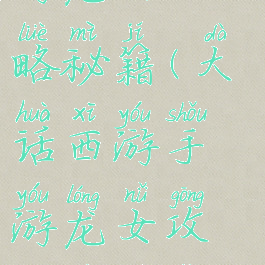 lüè mì jí dà
略秘籍(大
huà xī yóu shǒu
话西游手
yóu lóng nǚ gōng
游龙女攻